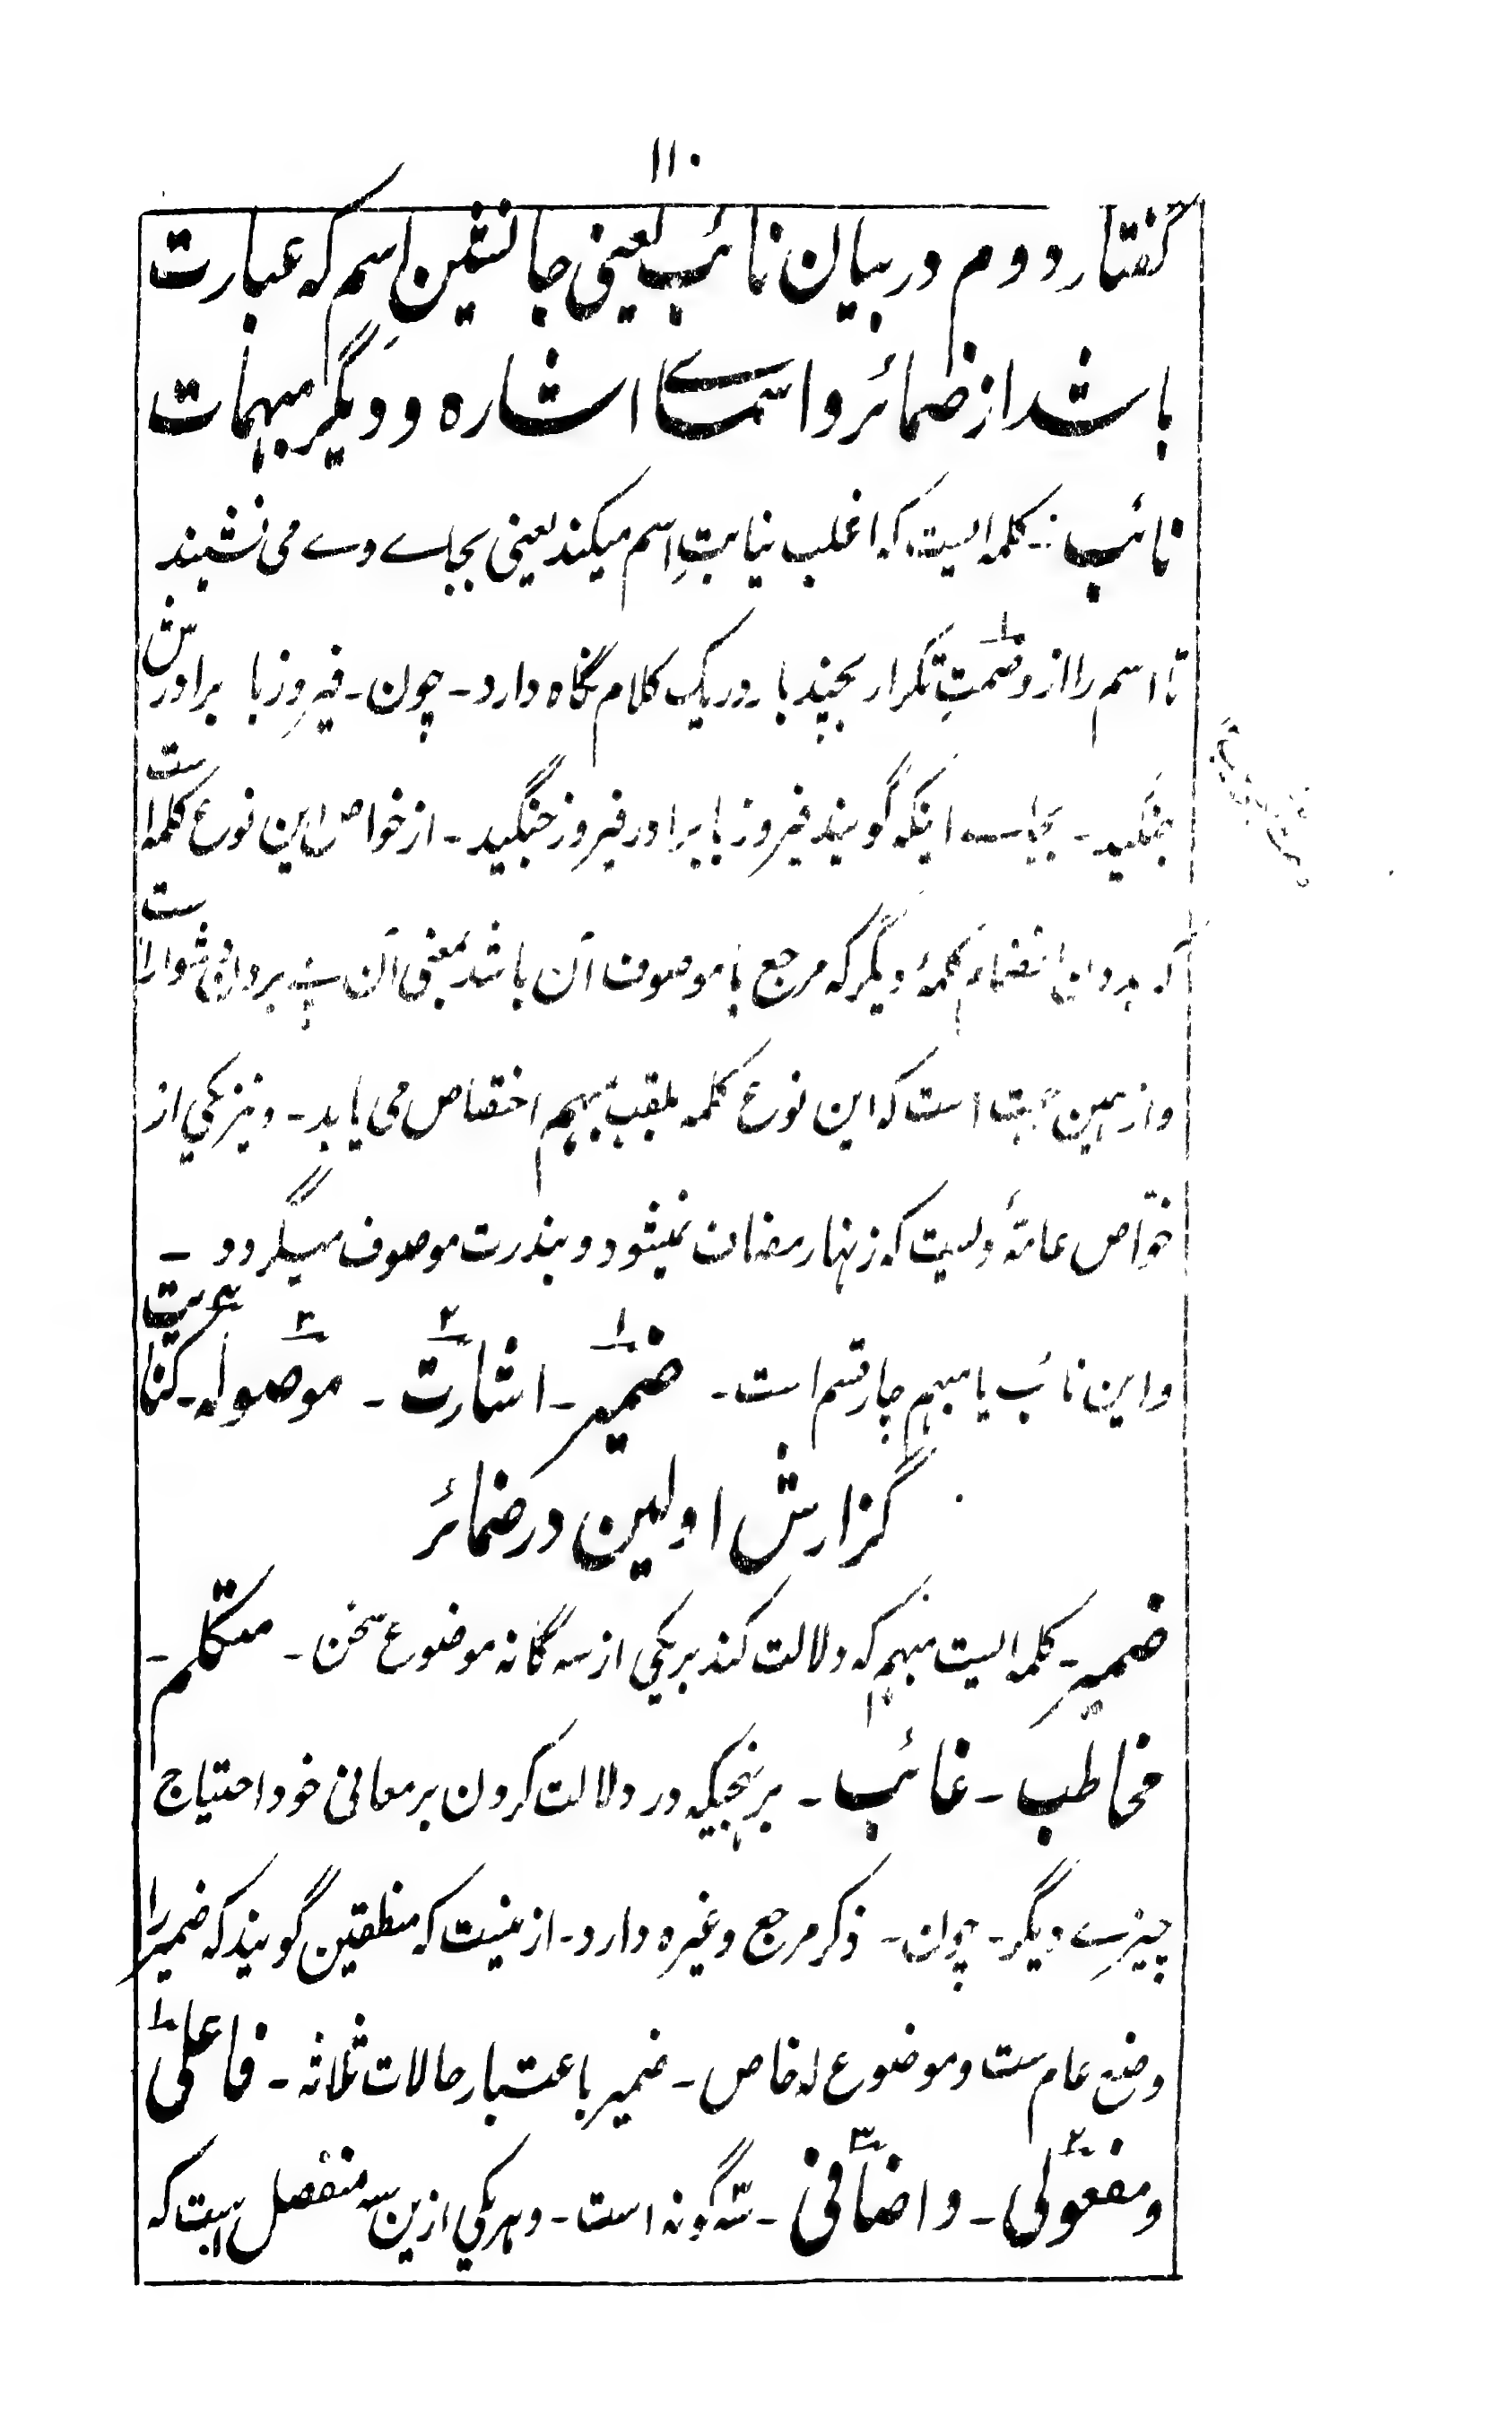 ۱۱۰
گفتار دوم در بیان نائب یعنی جانشینِ اسم که عبارت
باشد از ضمائر و اسماے اشاره و دیگر مبهمات
نائب :- کلمه ایست که اغلب نیابتِ اسم میکند یعنی بجاے وے می نشیند
تا اسم را از وصمتِ تکرار بچند بار در یک کلام نگاه دارد - چون - فیروز با برادرش
جنگید - بجاے اینکه گویند فیروز با برادر فیروز جنگید - از خواص این نوع کلمه است
که بدون انضمام کلمۀ دیگر که مرجع یا موصوف آن باشد بمعنی آن پے بردن دشوار است
و از همین جهت است که این نوع کلمه بلقب مبهم اختصاص می یابد - و نیز یکی از
خواص عامۀ ویست که زنهار مضاف نمیشود و بندرت موصوف میگردد -
و این نائب یا مبهم چار قسم است - ضمیر ۱ - اشارت ۲ - موصوله ۳ - کنایت ۴
گزارش اولین در ضمائر
ضمیر - کلمه ایست مبهم که دلالت کند بر یکی از سه گانه موضوع سخن - متکلم -
مخاطب - غائب - بر نهجیکه در دلالت کردن بر معانی خود احتیاج
چیزے دیگر - چون - ذکر مرجع و غیره دارد - ازینست که منطقین گویند که ضمیر را
وضع عام ست و موضوع له خاص - ضمیر باعتبار حالات ثلاثه - فاعلی ۱
و مفعولی ۲ - و اضافی ۳ - سه گونه است - و هر یکی ازین سه منفصل است که